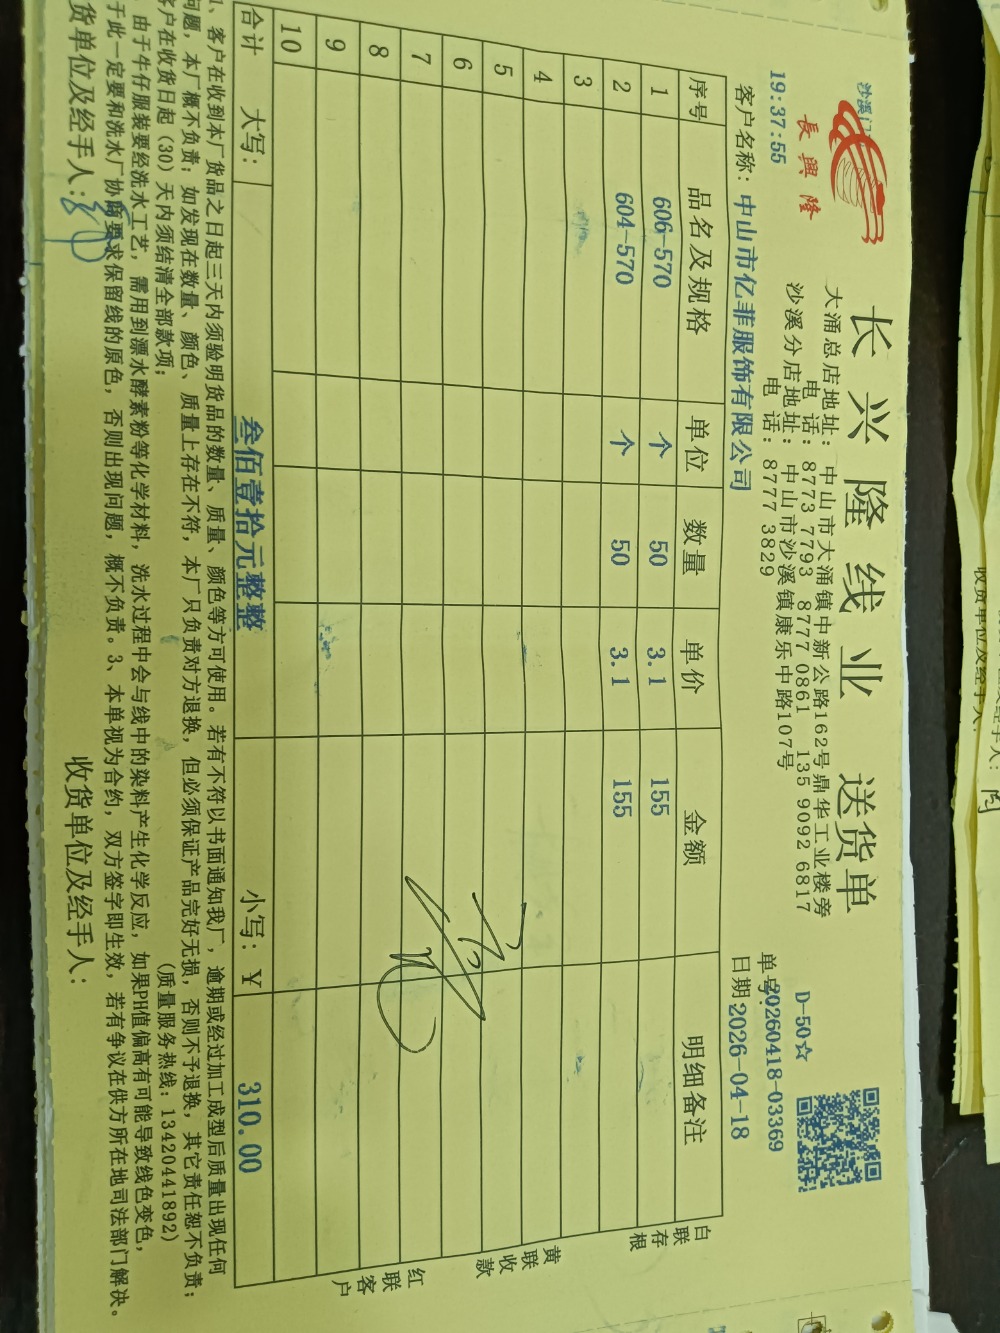 沙溪门
長興隆
长兴隆线业 送货单
大涌总店地址：中山市大涌镇中新公路162号鼎华工业楼旁
电 话：8773 7793 8777 0861 135 9092 6817
沙溪分店地址：中山市沙溪镇康乐中路107号
电 话：8777 3829
19:37:55
D-50☆
单号:20260418-03369
客户名称：中山市亿菲服饰有限公司
日期:2026-04-18
序号 品名及规格 单位 数量 单价 金额 明细备注
1 606-570 个 50 3.1 155
2 604-570 个 50 3.1 155
3
4
5
6
7
8
9
10
合计 大写：叁佰壹拾元整整 小写：￥ 310.00
白联存根
黄联收款
红联客户
1、客户在收到本厂货品之日起三天内须验明货品的数量、质量、颜色等方可使用。若有不符以书面通知我厂，逾期或经过加工成型后质量出现任何
问题，本厂概不负责；如发现在数量、颜色、质量上存在不符，本厂只负责对方退换，但必须保证产品完好无损，否则不予退换，其它责任恕不负责；
客户在收货日起（30）天内须结清全部款项； （质量服务热线：13420441892）
由于牛仔服装要经洗水工艺，需用到漂水酵素粉等化学材料，洗水过程中会与线中的染料产生化学反应，如果PH值偏高有可能导致线色变色，
于此一定要和洗水厂协商要求保留线的原色，否则出现问题，概不负责。3、本单视为合约，双方签字即生效，若有争议在供方所在地司法部门解决。
货单位及经手人：
收货单位及经手人：
收货单位及经手人：